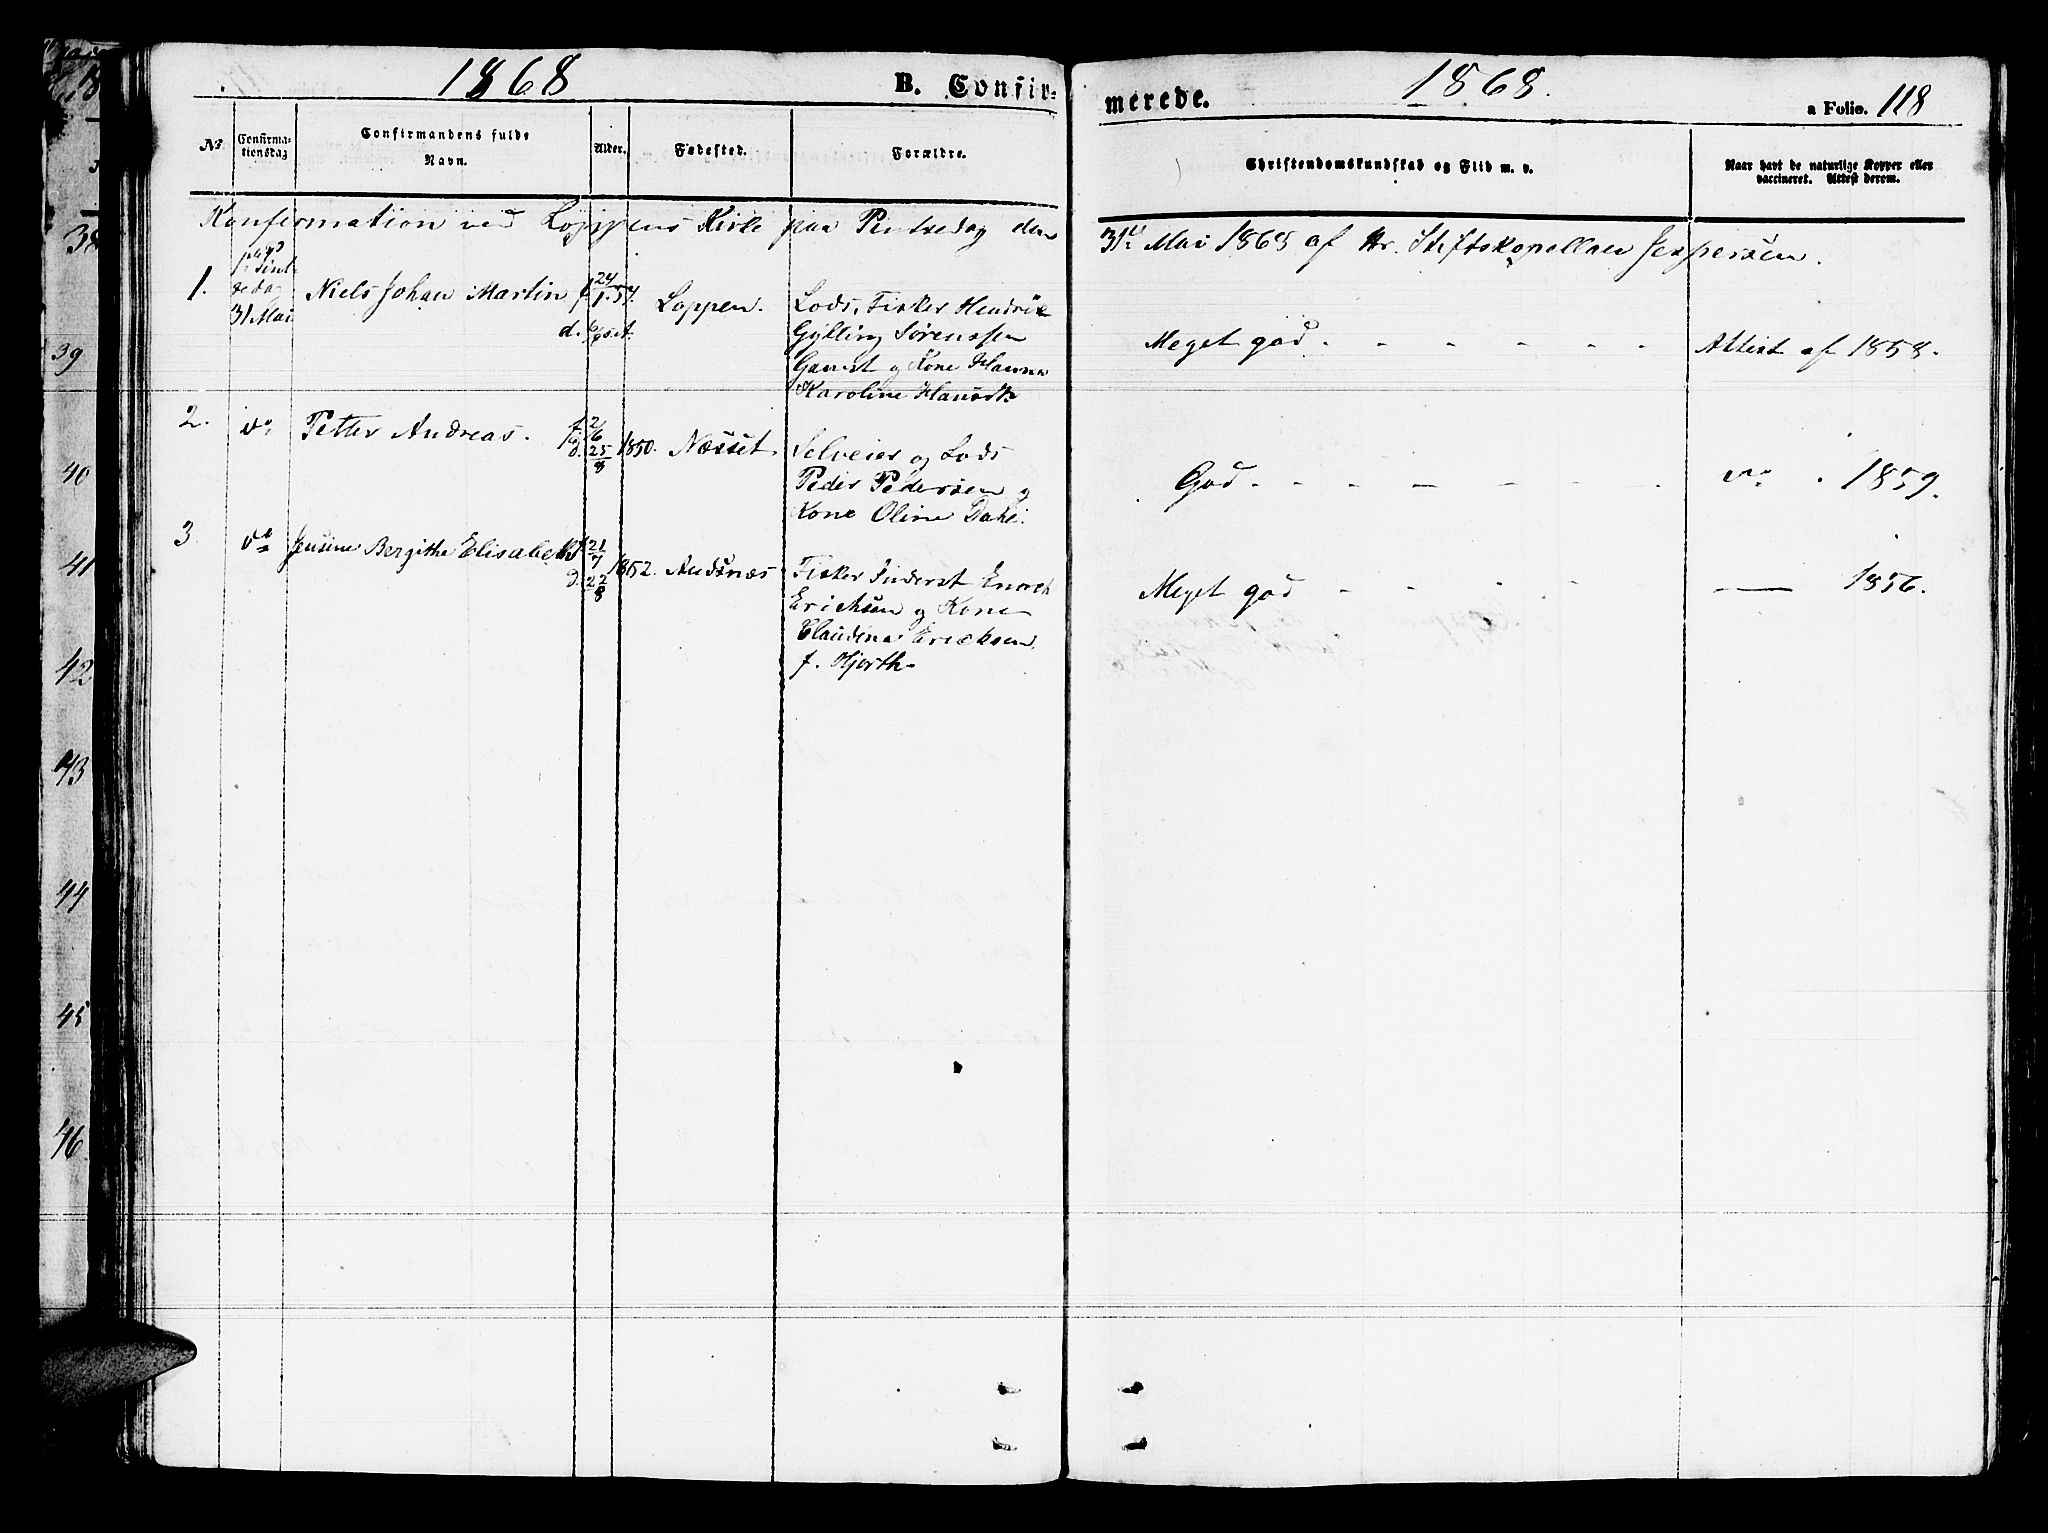 1868
B. Confir-
merede.
1868.
a Folio. 118
No
Confirma-
tionsdag
Confirmandens fulde
Navn.
Alder.
Fødested.
Forældre.
Christendomskundskab og Flid m. v.
Naar havt de naturlige Kopper eller
vaccineret. Attest derom.
Konfirmation ved Loppens Kirke paa Pintsedag den
31te Mai 1868 af Hr. Stiftskapellan Jespersen.
1.
31 Mai
Niels Johan Martin
f. 24/1.54.
d. 6/9
Loppen.
Lods, Fisker Hendrik
Gylling Sørenssen
Gamst og Kone Hanna
Karoline Hansdt.
Meget god
Attest af 1858.
2.
do
Petter Andreas.
f. 2/6
d. 25/8
1850.
Næsset
Selveier og Lods
Peder Pedersen og
Kone Oline Dahl.
God
do
1859.
3.
do
Jensine Bergithe Elisabeth
f. 21/7
d. 22/8
1852.
Andsnæs
Fisker Enoch
Erichsen og Kone
Claudina Ericksen
f. Hjorth
Meget god
1856.
18
38
39
40
41
42
43
44
45
46